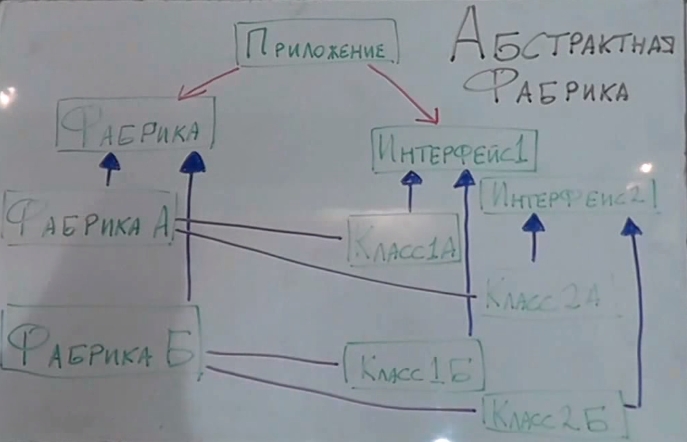 Абстрактная
Фабрика
Приложение
Фабрика
Интерфейс1
Интерфейс2
Фабрика А
Класс1А
Класс2А
Фабрика Б
Класс1Б
Класс2Б